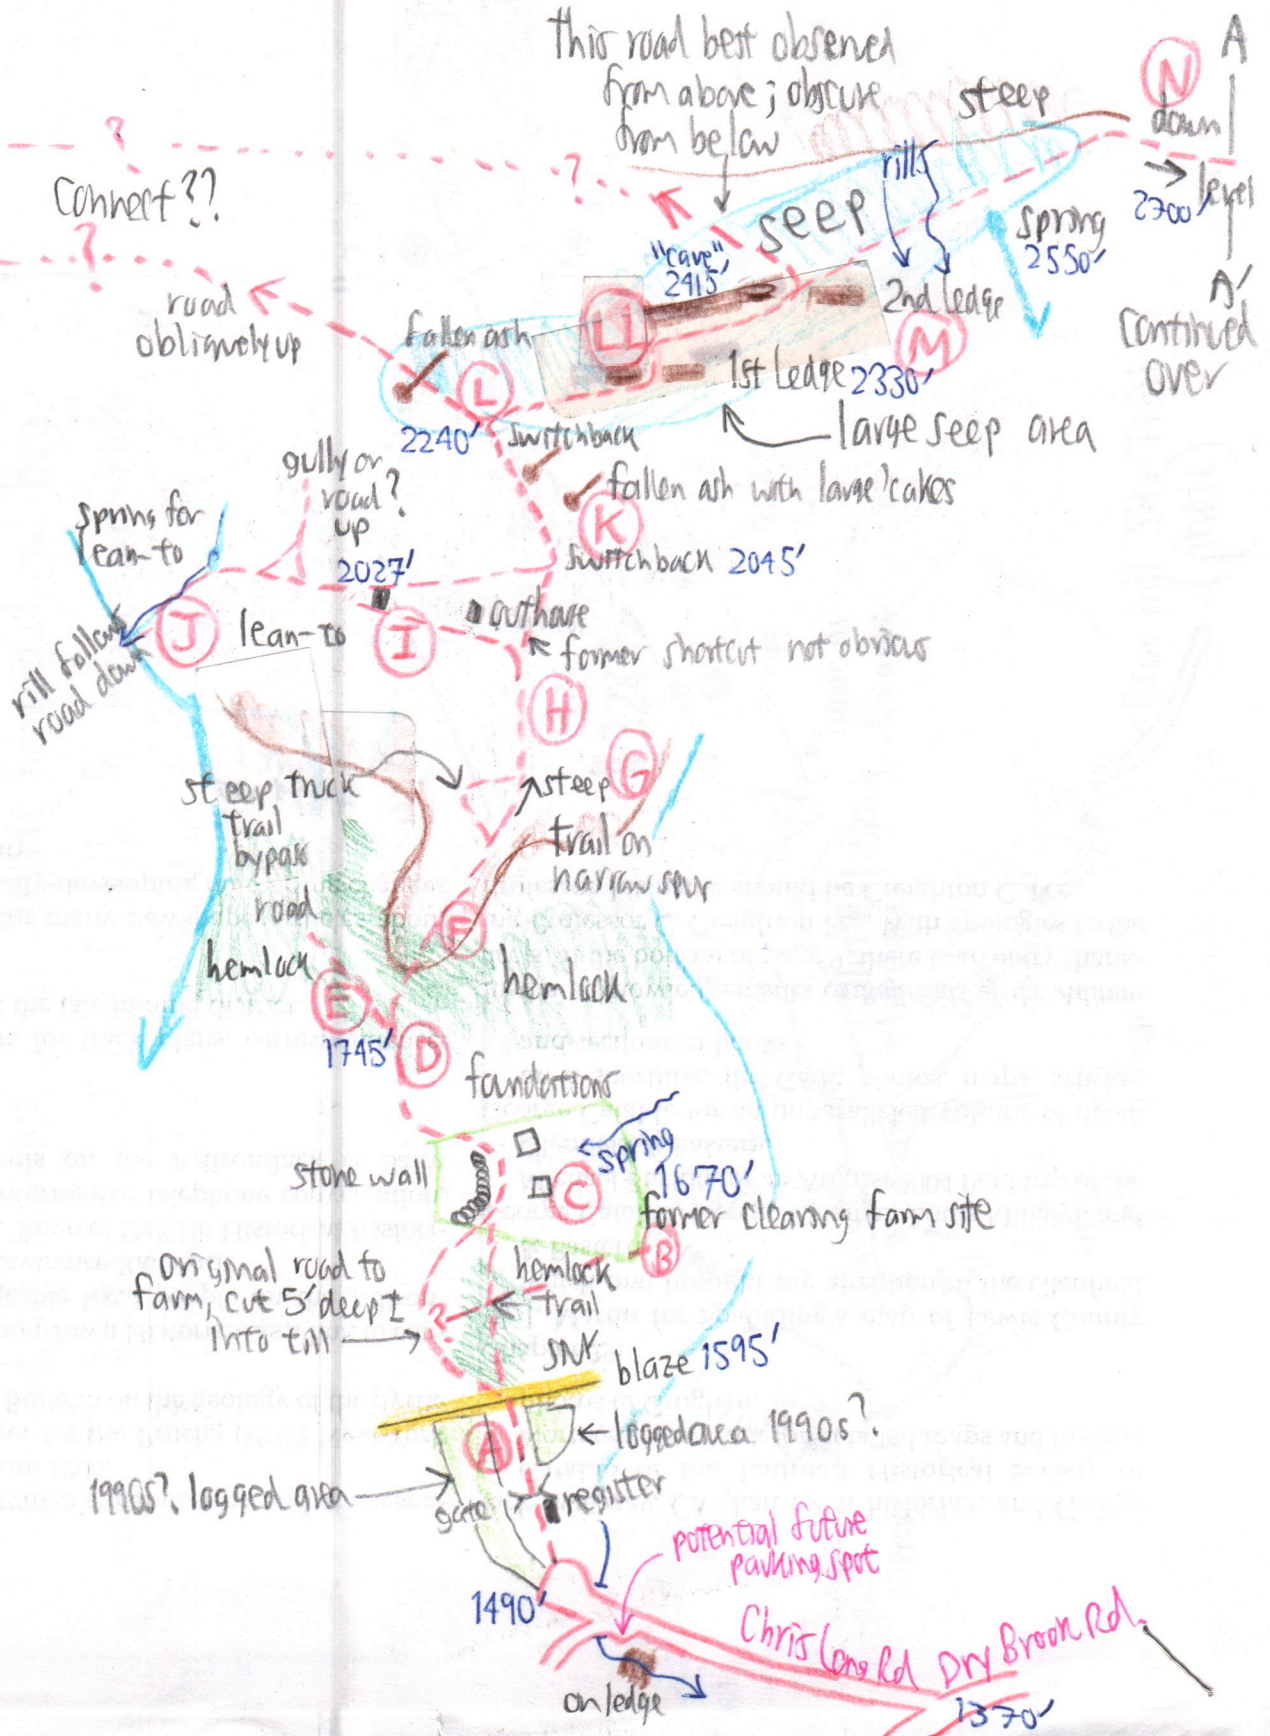 This road best observed
from above; obscure
from below
steep
N
A
down
level
2700'
A'
continued
over
?
?
?
Connect??
rills
seep
spring
2550'
"cave"
2415'
road
obliquely up
fallen ash
LL
2nd ledge
M
L
1st Ledge 2330'
large seep area
2240'
switchback
gully or
road?
up
fallen ash with large
K
spring for
lean-to
2027'
switchback 2045'
outhouse
J
lean-to
I
former shortcut - not obvious
rill follows
road down
H
G
steep truck
trail
bypass
road
steep
trail on
narrow spur
F
hemlock
hemlock
E
1745'
D
foundations
spring
1670'
stone wall
C
former clearing farm site
B
original road to
farm, cut 5' deep ±
into till
?
hemlock
trail
SNY
blaze 1595'
A
logged area 1990s?
1990s? logged area
gate
register
potential future
parking spot
1490'
Chris Long Rd
Dry Brook Rd.
on ledge
1370'